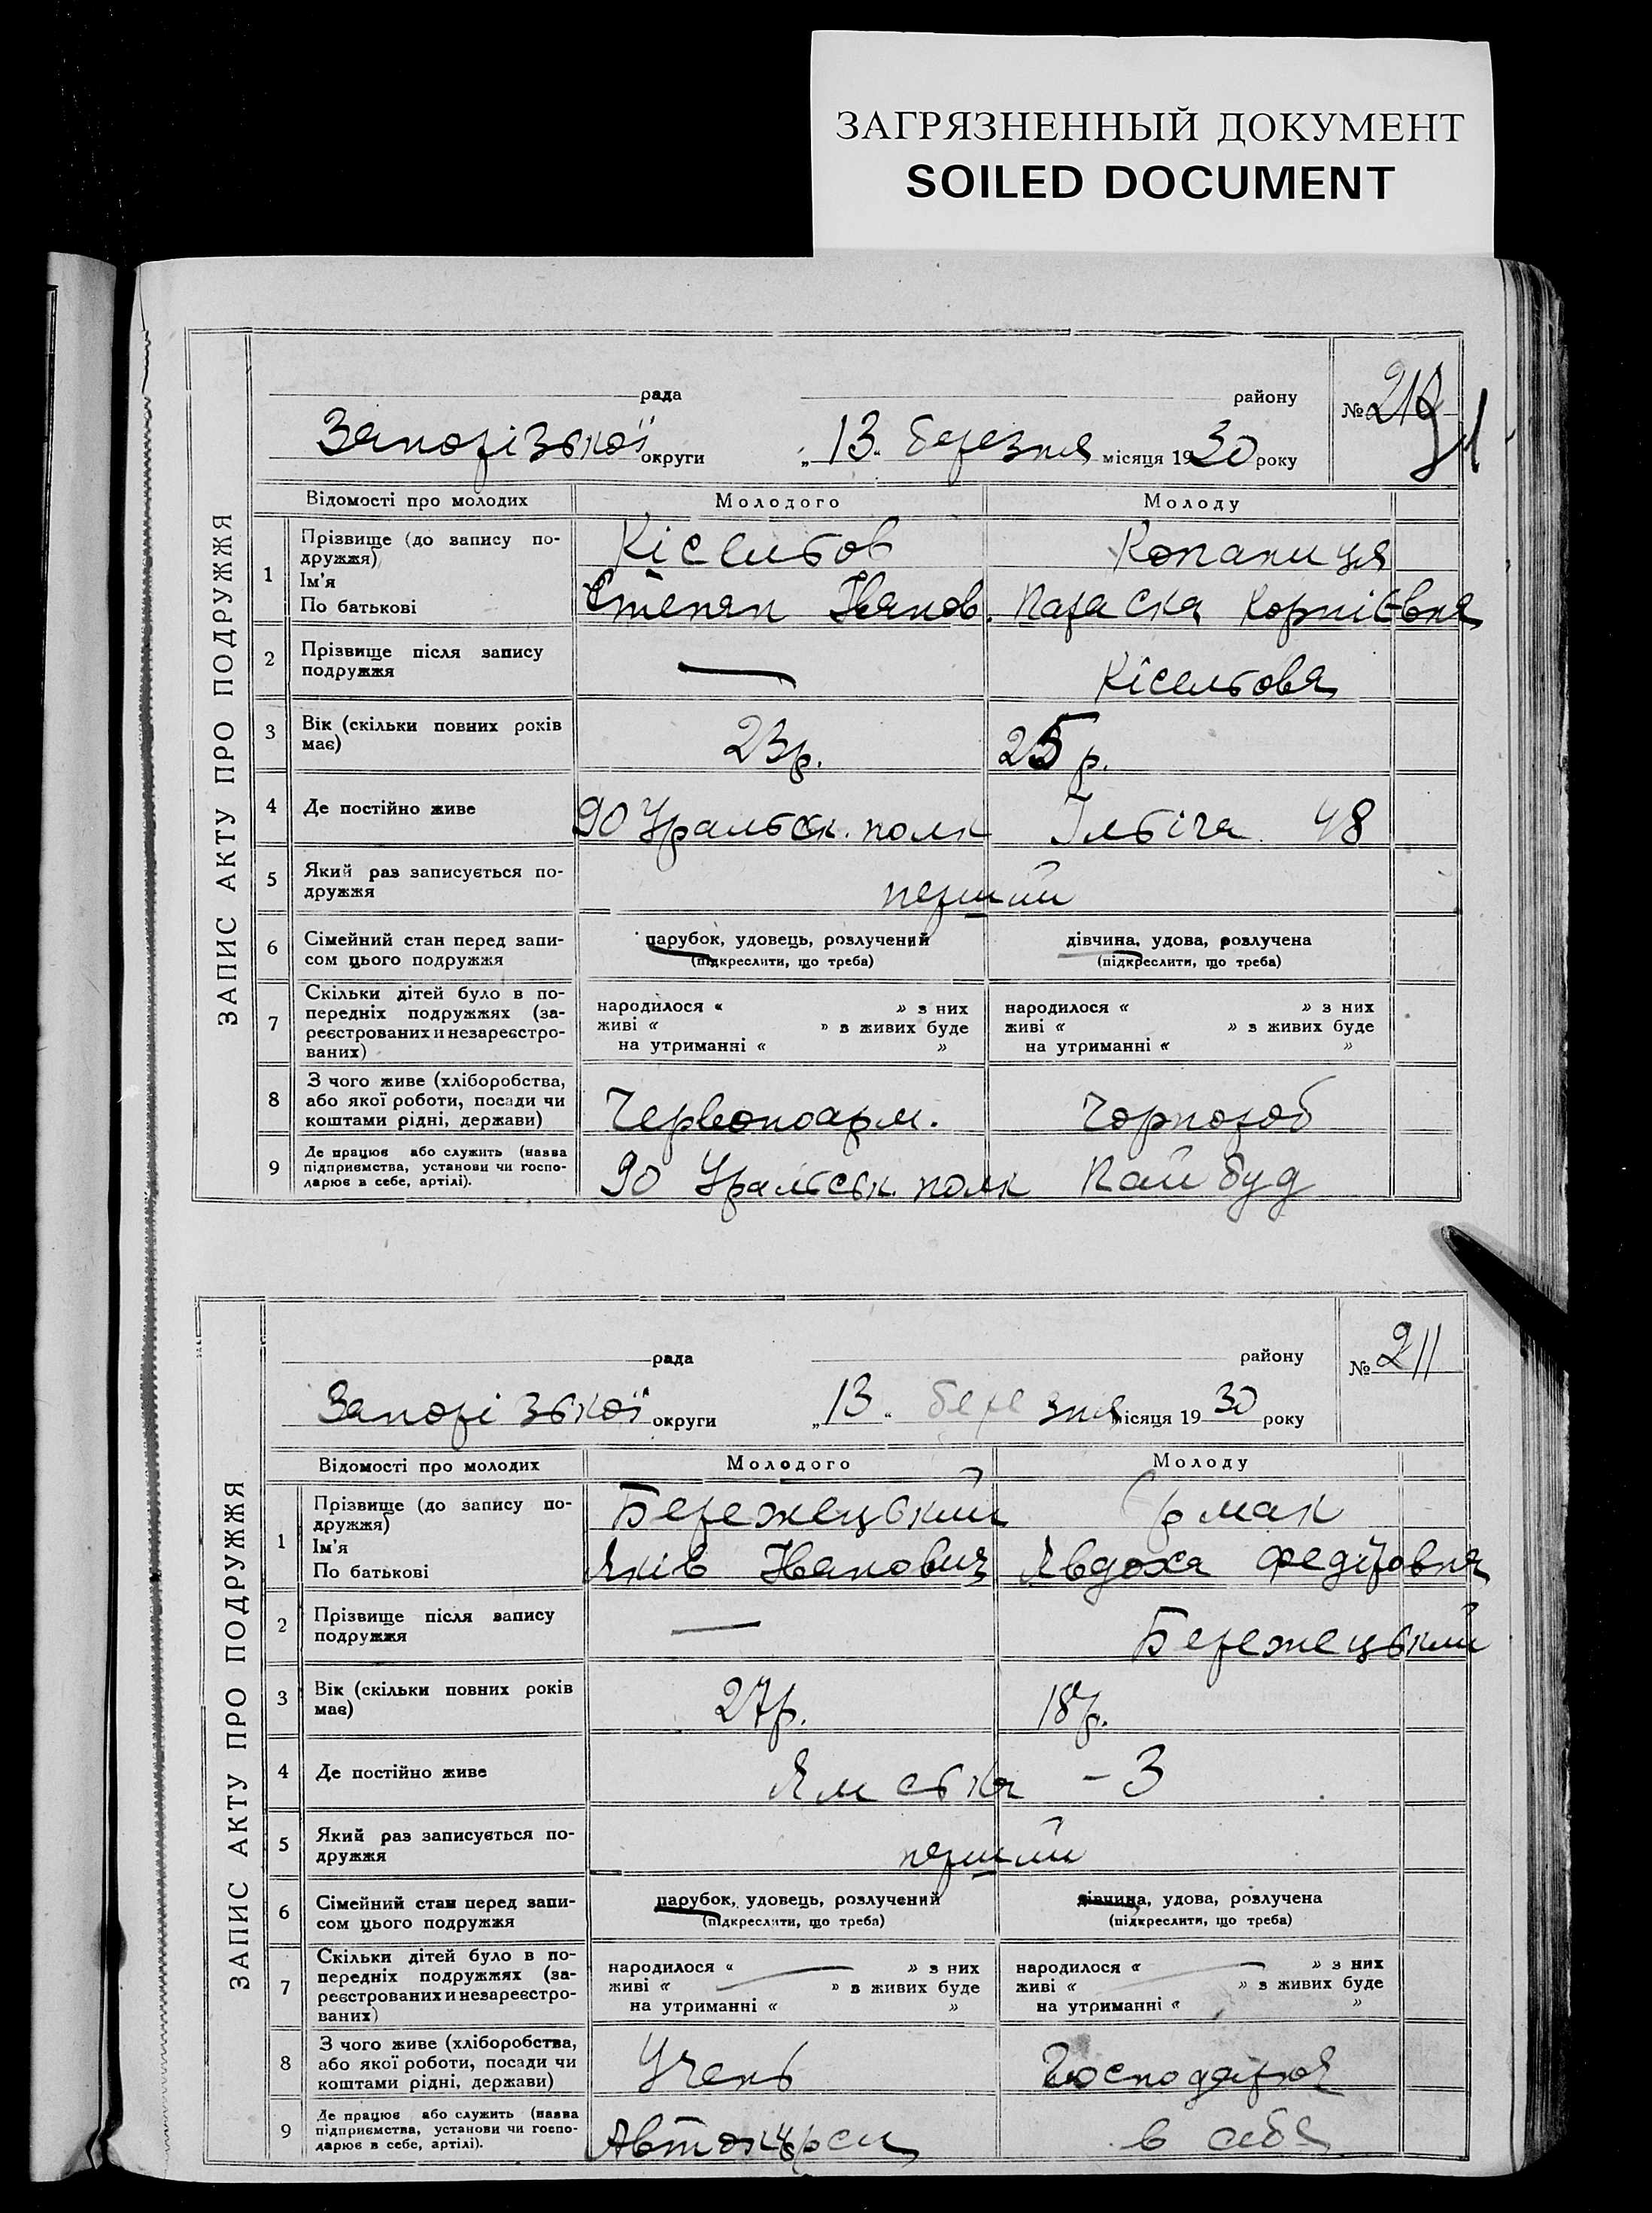 ЗАГРЯЗНЕННЫЙ ДОКУМЕНТ
SOILED DOCUMENT
ЗАПИС АКТУ ПРО ПОДРУЖЖЯ
рада району №
Запорізької округи „13“ березня місяця 1930 року
Відомості про молодих Молодого Молоду
1 Прізвище (до запису по-
дружжя) Кісельов Копаниця
Ім'я
По батькові Степан Іванов. Параска Корніївня
2 Прізвище після запису
подружжя — Кісельовя
3 Вік (скільки повних років
має) 23 р. 25 р.
4 Де постійно живе 90 Уральськ. полк Ільіча 48
5 Який раз записується по-
дружжя перший
6 Сімейний стан перед запи-
сом цього подружжя парубок, удовець, розлучений дівчина, удова, розлучена
(підкреслити, що треба) (підкреслити, що треба)
7 Скільки дітей було в по-
передніх подружжях (за-
реєстрованих и незареєстро-
ваних)
народилося « » з них народилося « » з них
живі « » з живих буде живі « » з живих буде
на утриманні « » на утриманні « »
8 З чого живе (хліборобства,
або якої роботи, посади чи
коштами рідні, держави) Червоноарм. Чорнороб
9 Де працює або служить (назва
підприємства, установи чи госпо-
дарює в себе, артілі). 90 Уральськ. полк Пайбуд
ЗАПИС АКТУ ПРО ПОДРУЖЖЯ
рада району № 211
Запорізької округи „13“ березня місяця 1930 року
Відомості про молодих Молодого Молоду
1 Прізвище (до запису по-
дружжя) Бережецький Єрмак
Ім'я
По батькові Яків Іванович Явдоха Федіровня
2 Прізвище після запису
подружжя — Бережецький
3 Вік (скільки повних років
має) 27 р. 18 р.
4 Де постійно живе Ямська - 3
5 Який раз записується по-
дружжя перший
6 Сімейний стан перед запи-
сом цього подружжя парубок, удовець, розлучений дівчина, удова, розлучена
(підкреслити, що треба) (підкреслити, що треба)
7 Скільки дітей було в по-
передніх подружжях (за-
реєстрованих и незареєстро-
ваних)
народилося « » з них народилося « » з них
живі « » з живих буде живі « » з живих буде
на утриманні « » на утриманні « »
8 З чого живе (хліборобства,
або якої роботи, посади чи
коштами рідні, держави) Учень
9 Де працює або служить (назва
підприємства, установи чи госпо-
дарює в себе, артілі). Автокурси в себя